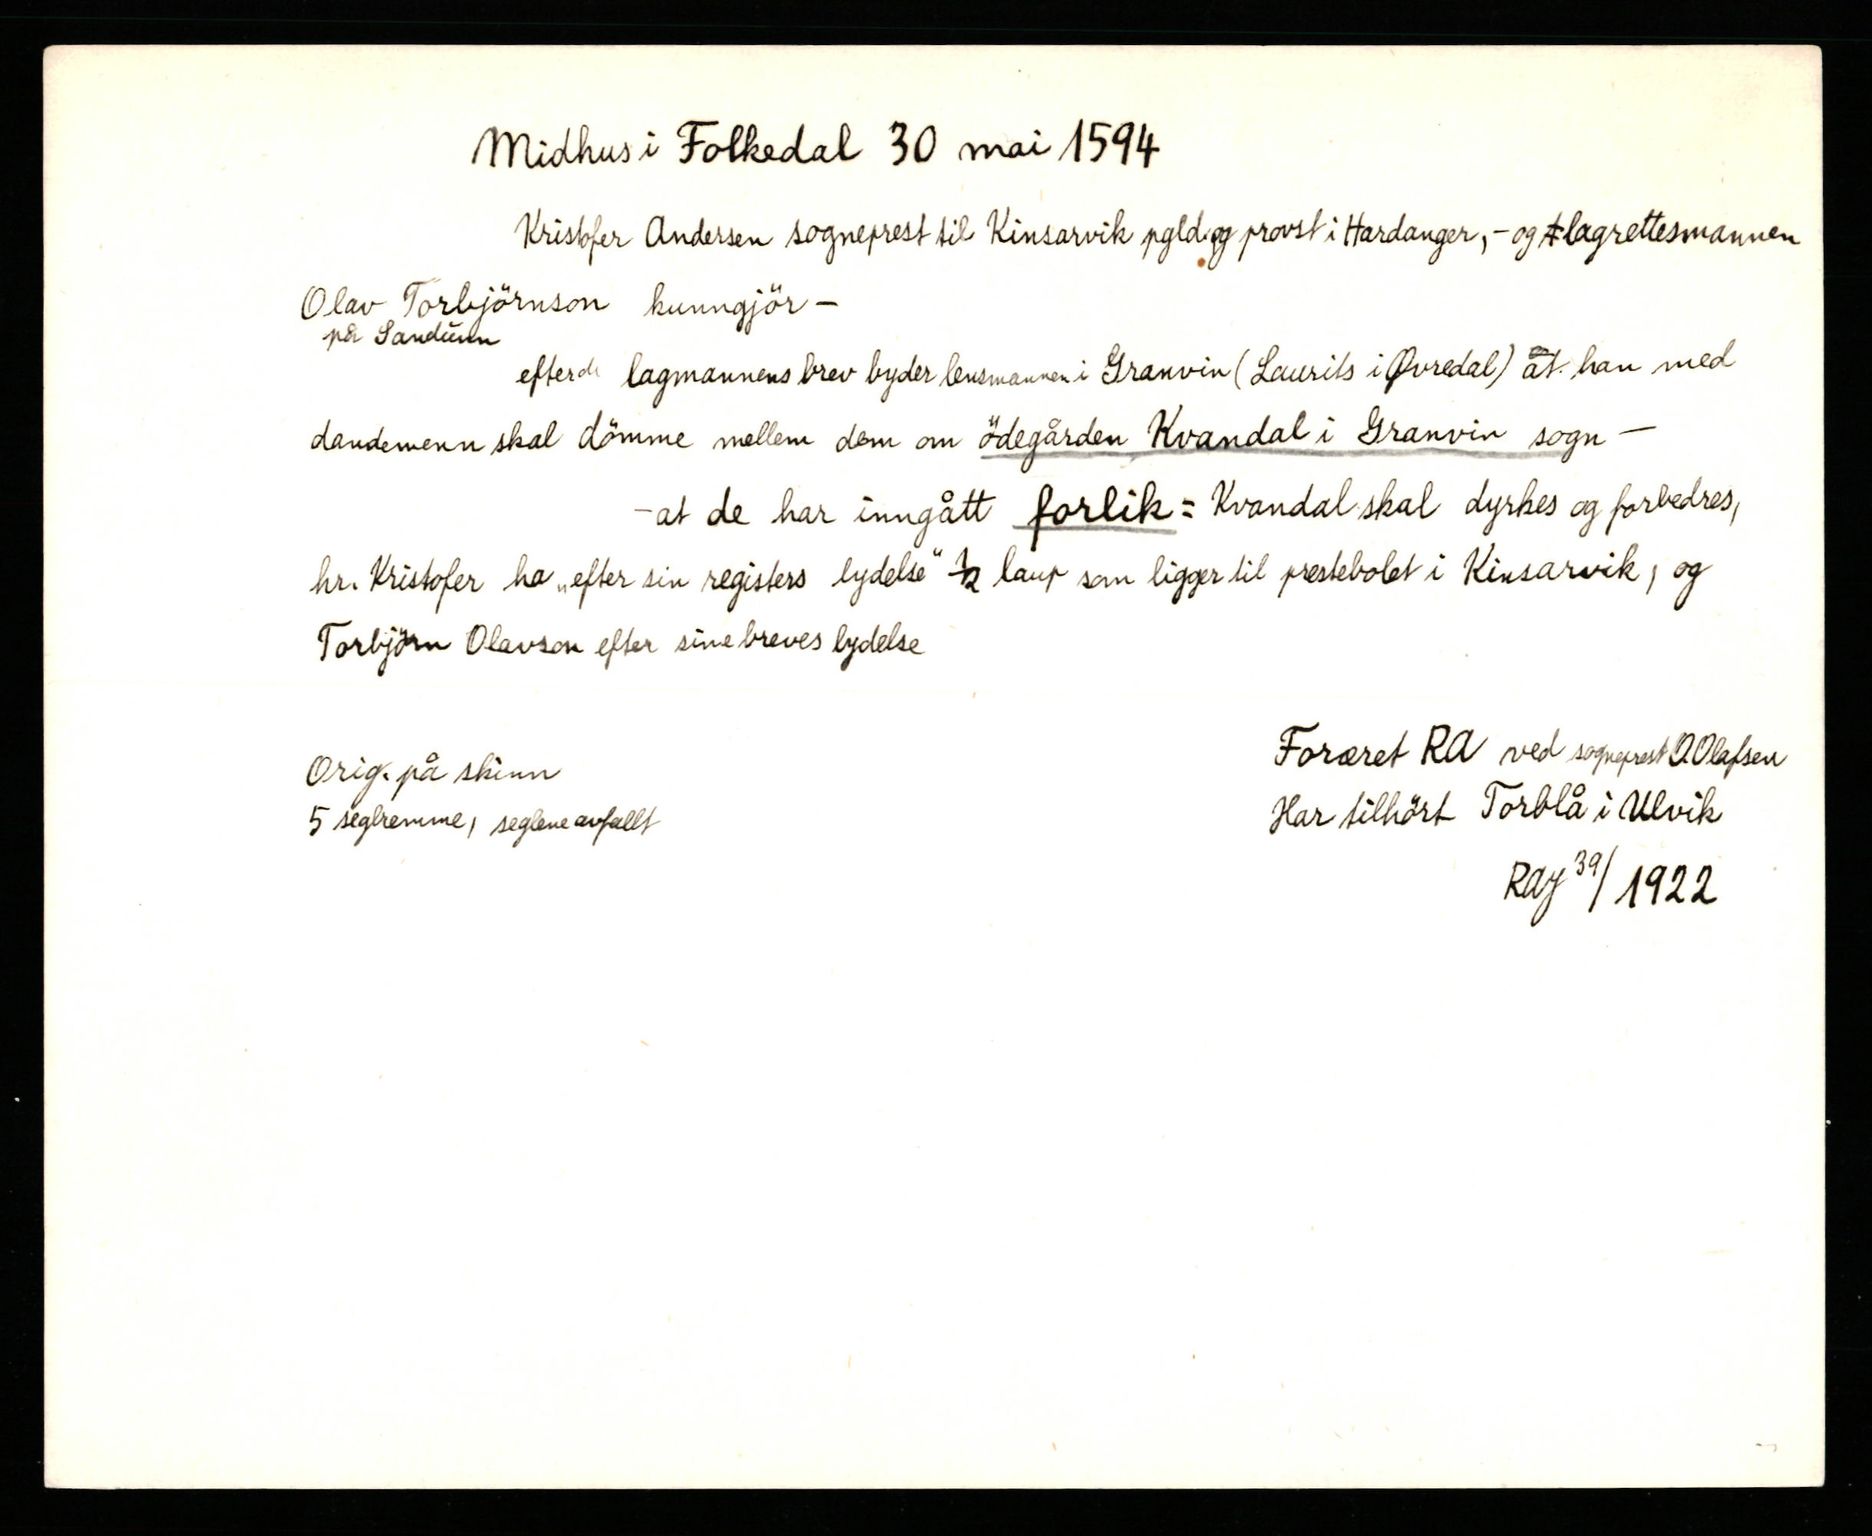 Midhus i Folkedal 30 mai 1594
Kristofer Andersen sogneprest til Kinsarvik pgld. og provst i Hardanger, - og lagrettesmannen
Olav Torbjörnson kunngjör -
på Sanduin
efter lagmannens brev byder lensmannen i Granvin (Laurits i Øvredal) at han med
dandemenn skal dömme mellem dem om ödegården Kvandal i Granvin sogn -
- at de har inngått forlik = Kvandal skal dyrkes og forbedres,
hr. Kristofer ha „efter sin registers lydelse" 1/2 laup som ligger til prestebolet i Kinsarvik, og
Torbjörn Olavson efter sine breves lydelse
Orig. på skinn
5 seglremme, seglene avfallt
Foræret RA ved sogneprest O. Olafsen
Har tilhört Torblå i Ulvik
RAj 39/1922